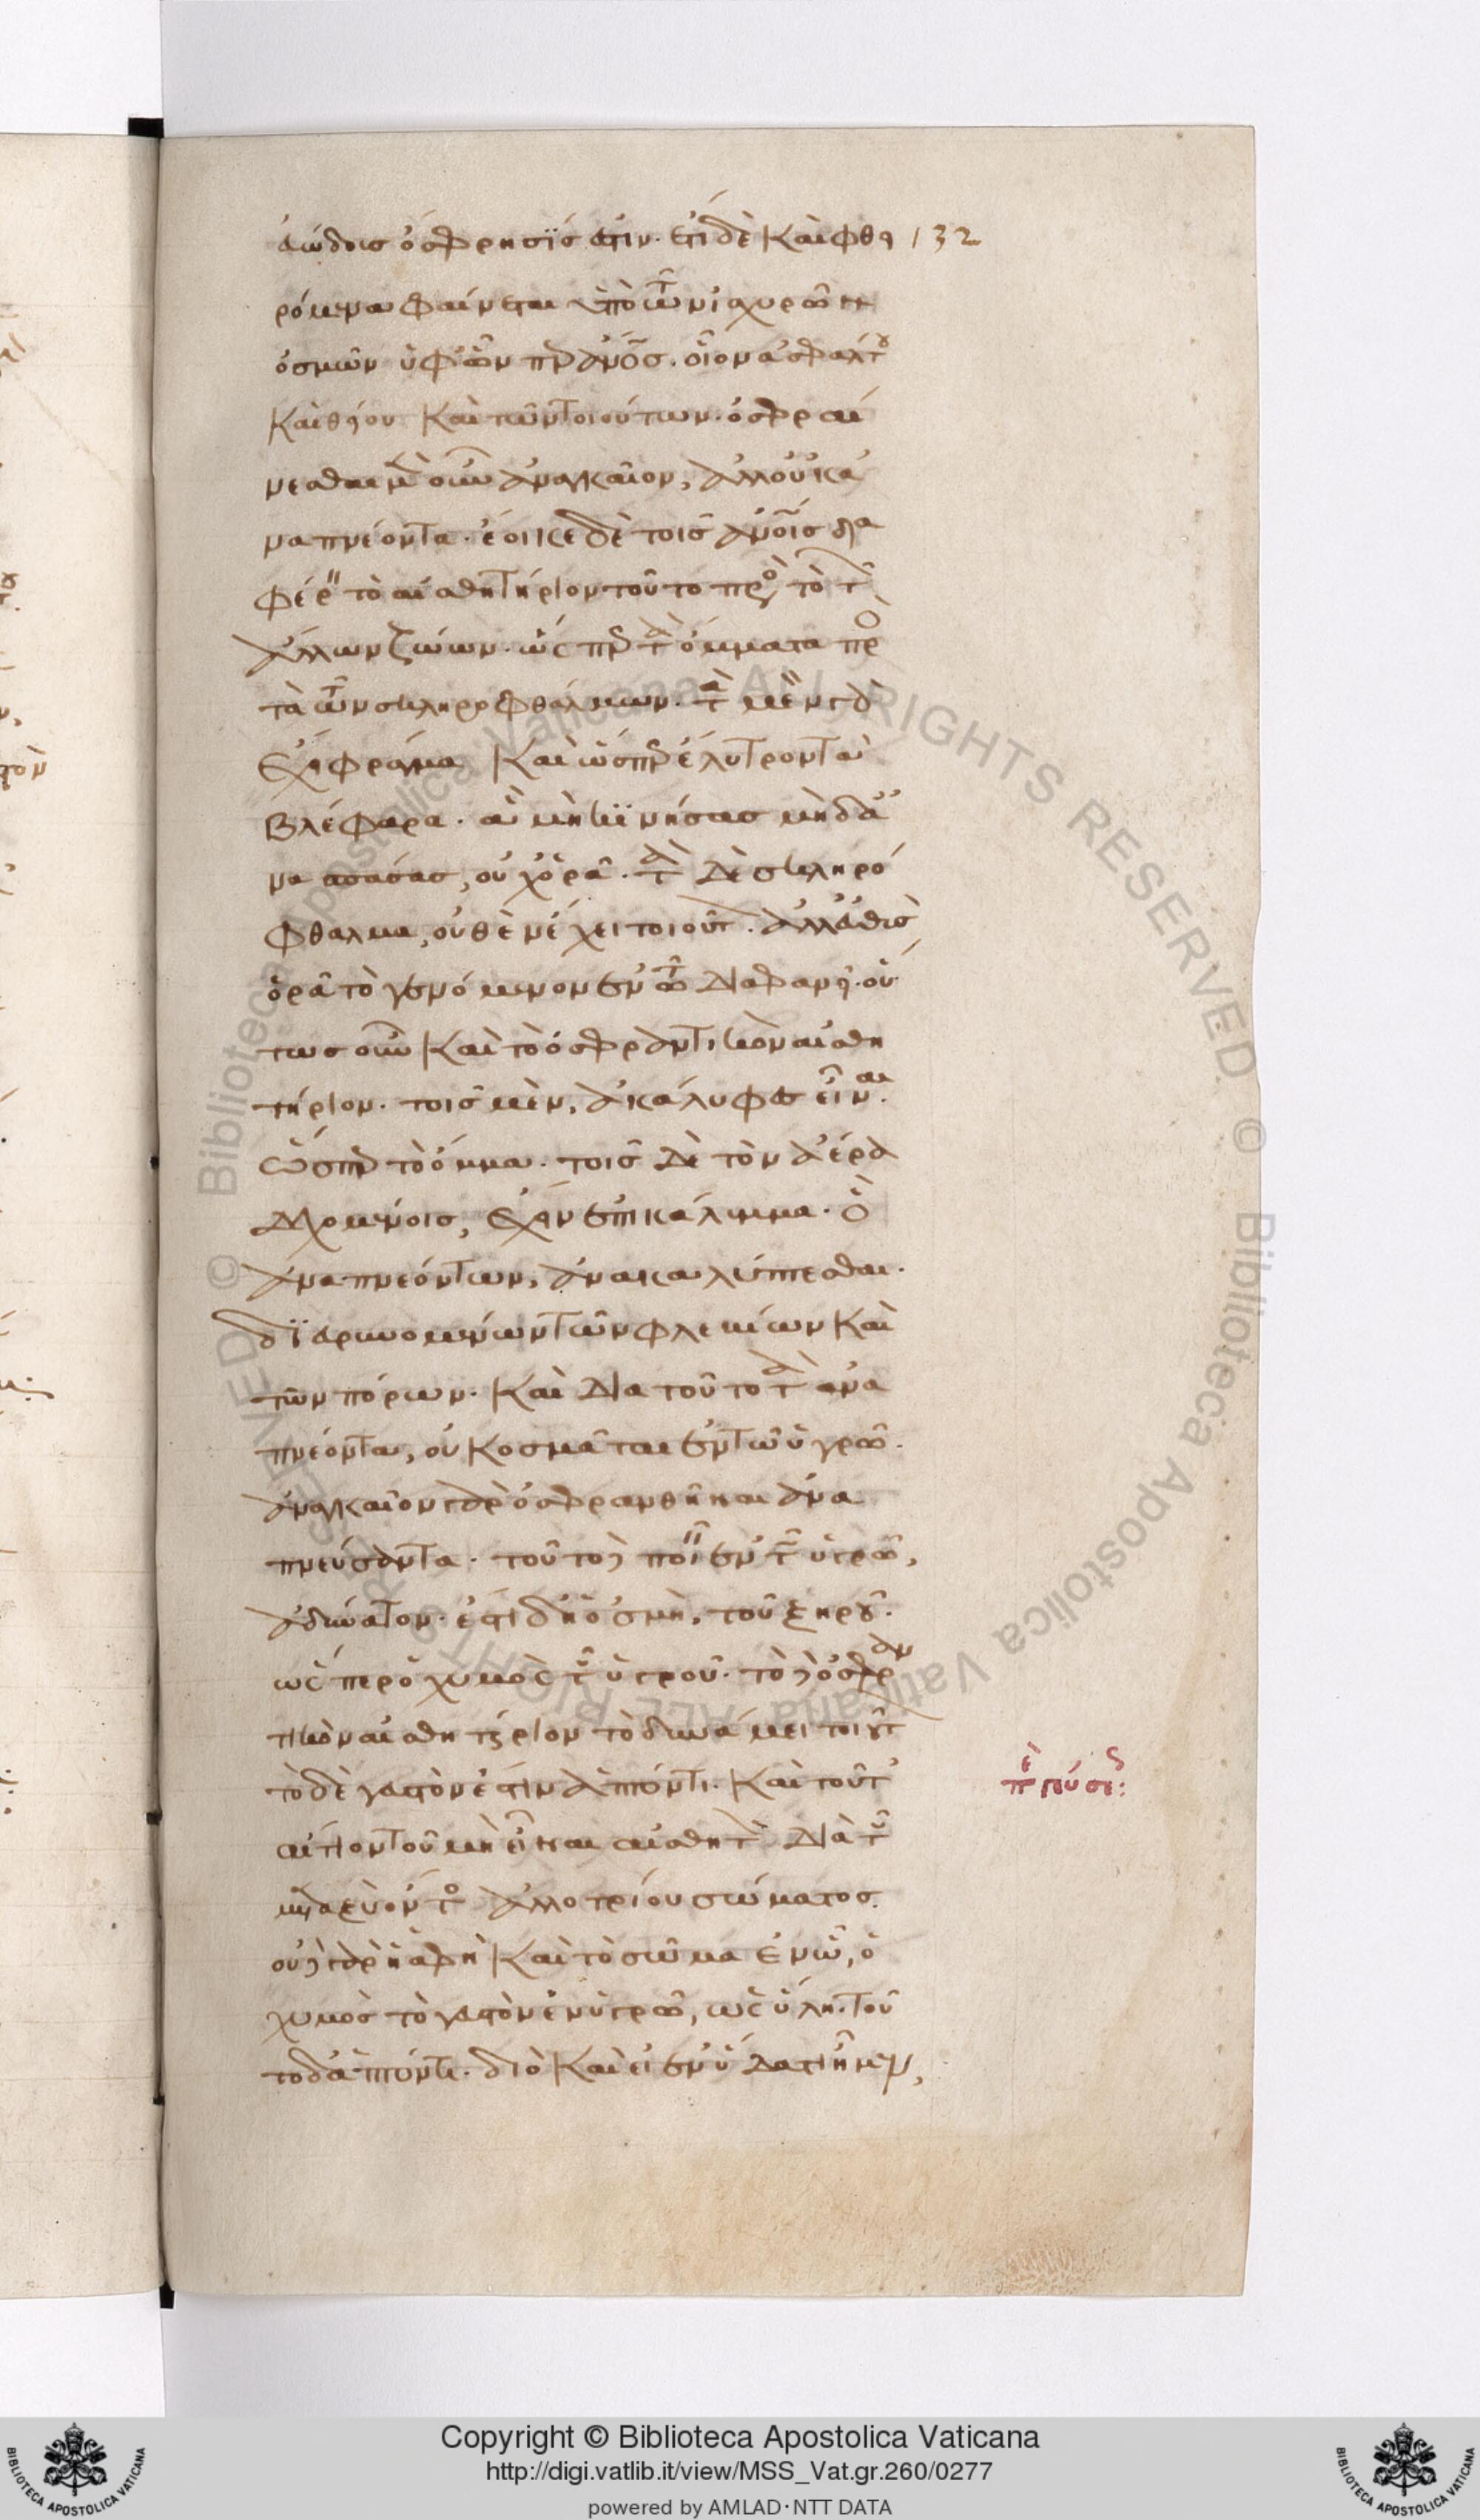 ευώδους ὄσφρησίς ἐστιν. ἔτι δὲ καὶ φθει 132
ρόμενα φαίνεται ὑπὸ τῶν ἰσχυρῶν
ὀσμῶν ὑφ' ὧν περ ἄνθρωπος. οἷον ἀσφάλτου
καὶ θείου καὶ τῶν τοιούτων. ὀσφραί
νεσθαι μὲν οὖν ἀναγκαῖον, ἀλλ' οὐκ ἀ
ναπνέοντα. ἔοικε δὲ τοῖς ἀνθρώποις δια
φέρειν τὸ αἰσθητήριον τοῦτο πρὸς τὸ τῶν
ἄλλων ζώων. ὥσπερ τὰ ὄμματα πρὸς
τὰ τῶν σκληροφθάλμων. τὰ μὲν γὰρ
ἔχει φράγμα καὶ ὥσπερ ἔλυτρον τὰ
βλέφαρα. ἃ μὴ κινήσας μηδ' ἀ
νασπάσας, οὐχ ὁρᾷ. τὰ δὲ σκληρό
φθαλμα, οὐθὲν ἔχει τοιοῦτον. ἀλλ' εὐθὺς
ὁρᾷ τὸ γενόμενον ἐν τῷ διαφανεῖ. οὕ
τως οὖν καὶ τὸ ὀσφραντικὸν αἰσθη
τήριον. τοῖς μὲν, ἀκάλυφες εἶναι.
ὥσπερ τὸ ὄμμα. τοῖς δὲ τὸν ἀέρα
δεχομένοις, ἔχειν ἐπικάλυμμα. ὃ
ἀναπνεόντων, ἀνακαλύπτεσθαι.
διευρυνομένων τῶν φλεβίων καὶ
τῶν πόρων. καὶ διὰ τοῦτο τὰ ἀνα
πνέοντα, οὐκ ὀσμᾶται ἐν τῷ ὑγρῷ.
ἀναγκαῖον γὰρ ὀσφρανθῆναι ἀνα
πνεύσαντα. τοῦτο δὲ ποιεῖν ἐν τῷ ὑγρῷ,
ἀδύνατον. ἔστι δ' ἡ ὀσμὴ, τοῦ ξηροῦ.
ὥσπερ ὁ χυμὸς τοῦ ὑγροῦ. τὸ δὲ ὀσφραν
τικὸν αἰσθητήριον τὸ δυνάμει τοιοῦτον
τὸ δὲ γευστόν ἐστιν ἁπτόν τι. καὶ τοῦτ'
αἴτιον τοῦ μὴ εἶναι αἰσθητὸν διὰ τοῦ
μεταξὺ ὄντος ἀλλοτρίου σώματος.
οὐδὲ γὰρ ἡ ἁφή καὶ τὸ σῶμα ἐν ᾧ, ὁ
χυμὸς τὸ γευστὸν ἐν ὑγρῷ, ὡς ὕλῃ. τοῦ
το δ' ἁπτόν τι. διὸ καὶ εἰ ἐν ὕδατι ἦμεν,
περὶ γεύσεως:
Copyright © Biblioteca Apostolica Vaticana
http://digi.vatlib.it/view/MSS_Vat.gr.260/0277
powered by AMLAD·NTT DATA